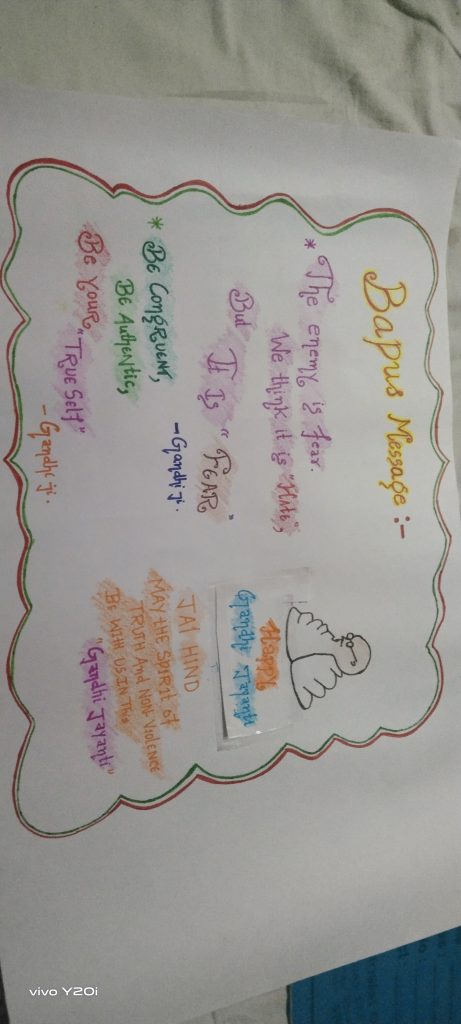 Bapus Message :-
* The enemy is fear.
We think it is "Hate",
But It Is "FEAR"
- Gandhi ji.
* Be Congruent,
Be Authentic,
Be Your
"True Self"
- Gandhi ji.
Happy
Gandhi Jayanti
JAI HIND
MAY THE SPIRIT of
TRUTH AND NON VIOLENCE
BE WITH US IN THIS
"Gandhi Jayanti"
vivo Y20i